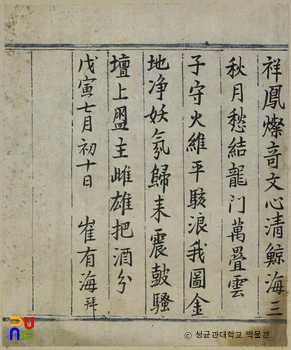 祥鳳燦奇文心清鯨海三
秋月愁結龍门萬疊雲
子守火維平駭浪我圖金
地净妖氛歸来震鼓騷
壇上盟主雌雄把酒分
戊寅七月初十日 崔有海 拜
© 성균관대학교 박물관